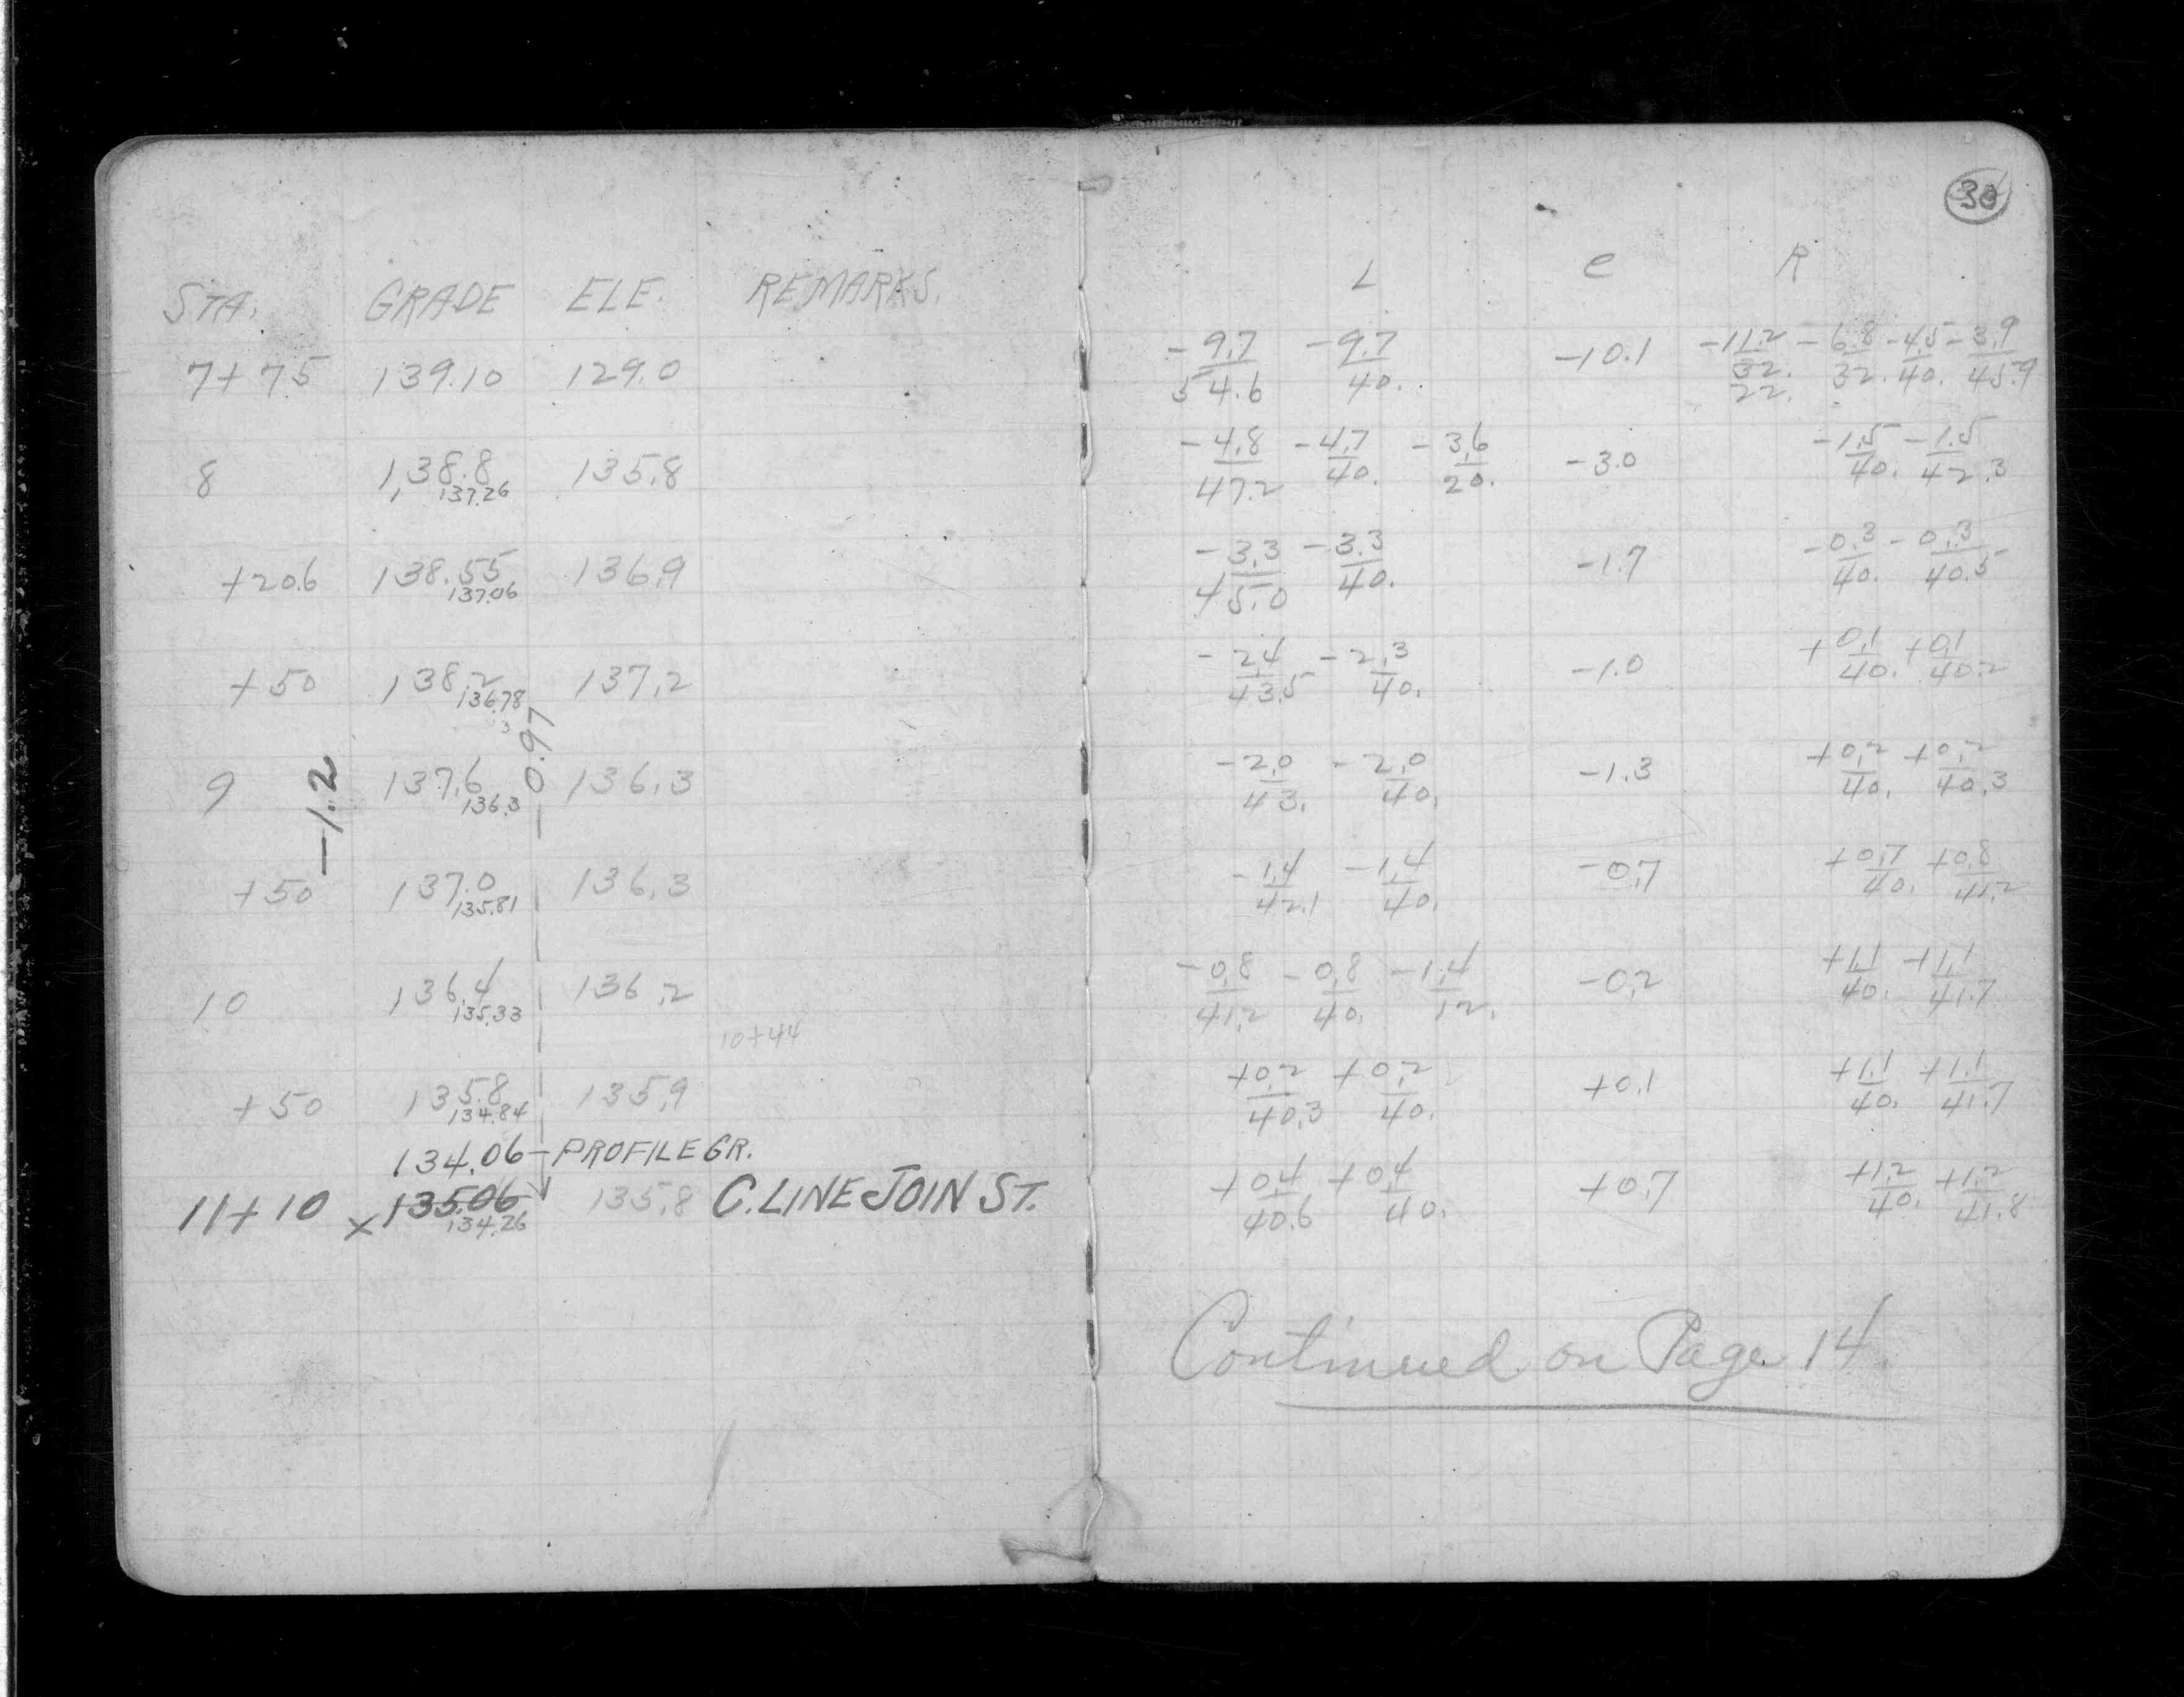 30
STA. GRADE ELE. REMARKS. L C R
7+75 139.10 129.0 -9.7/54.6 -9.7/40. -10.1 -11.2/32. -6.8/32. -4.5/40. -3.9/45.9
22.
8 138.8 135.8 -4.8/47.2 -4.7/40. -3.6/20. -3.0 -1.5/40. -1.5/42.3
137.26
+20.6 138.55 136.9 -3.3/45.0 -3.3/40. -1.7 -0.3/40. -0.3/40.5
137.06
+50 138.2 137.2 -2.4/43.5 -2.3/40. -1.0 +0.1/40. +0.1/40.2
136.78
3
-1.2
-0.97
9 137.6 136.3 -2.0/43. -2.0/40. -1.3 +0.2/40. +0.2/40.3
136.3
+50 137.0 136.3 -1.4/42.1 -1.4/40. -0.7 +0.7/40. +0.8/41.2
135.81
10 136.4 136.2 -0.8/41.2 -0.8/40. -1.4/12. -0.2 +1.1/40. +1.1/41.7
135.33
10+44
+50 135.8 135.9 +0.2/40.3 +0.2/40. +0.1 +1.1/40. +1.1/41.7
134.84
134.06 - PROFILE GR.
11+10 x 135.06 135.8 C. LINE JOIN ST. +0.4/40.6 +0.4/40. +0.7 +1.2/40. +1.2/41.8
134.26
Continued on Page 14.